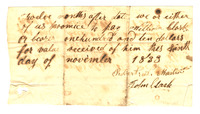 Twelve months after date we or either
of us promise to pay William Clark
or bearer one hundred and ten dollars
for value received of him this ninth
day of november 1833
Clark